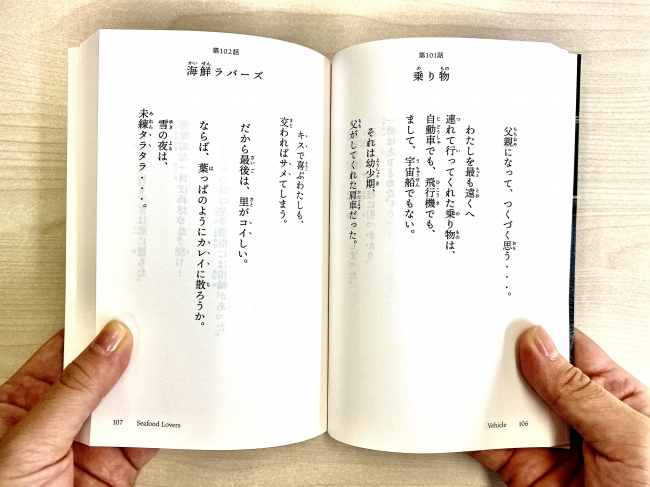 第101話
乗り物
父親になって、つくづく思う・・・。
わたしを最も遠くへ
連れて行ってくれた乗り物は、
自動車でも、飛行機でも、
まして、宇宙船でもない。
それは幼少期、
父がしてくれた肩車だった。
Vehicle 106
第102話
海鮮ラバーズ
キスで喜ぶわたしも、
交わればサメてしまう。
だから最後は、里がコイしい。
ならば、葉っぱのようにカレイに散ろうか。
雪の夜は、
未練タラタラ・・・。
107 Seafood Lovers